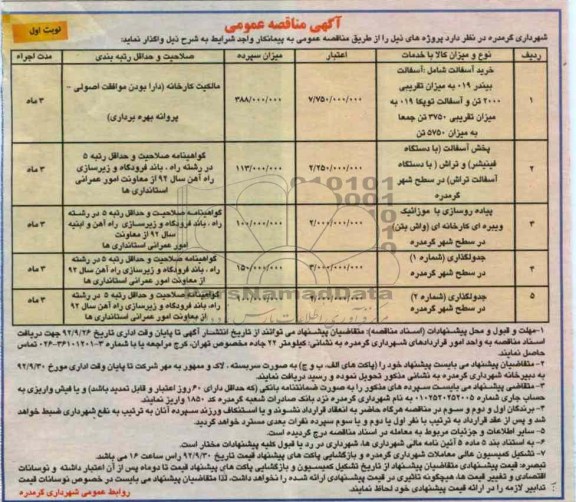 آگهی مناقصه عمومی
نوبت اول
شهرداری گرمدره در نظر دارد پروژه های ذیل را از طریق مناقصه عمومی به پیمانکار واجد شرایط به شرح ذیل واگذار نماید:
ردیف نوع و میزان کالا یا خدمات اعتبار میزان سپرده صلاحیت و حداقل رتبه بندی مدت اجراء
۱
خرید آسفالت شامل :آسفالت
بیندر ۰۱۹ به میزان تقریبی
۲۰۰۰ تن و آسفالت توپکا ۰۱۹ به
میزان تقریبی ۳۷۵۰ تن جمعا
به میزان ۵۷۵۰ تن
۷/۷۵۰/۰۰۰/۰۰۰
۳۸۸/۰۰۰/۰۰۰
مالکیت کارخانه (دارا بودن موافقت اصولی –
پروانه بهره برداری)
۳ ماه
پخش آسفالت (با دستگاه
فینیشر) و تراش ( با دستگاه
آسفالت تراش) در سطح شهر
گرمدره
۲/۲۵۰/۰۰۰/۰۰۰
۱۱۳/۰۰۰/۰۰۰
گواهینامه صلاحیت و حداقل رتبه ۵
در رشته راه ، باند فرودگاه و زیرسازی
راه آهن سال ۹۲ از معاونت امور عمرانی
استانداری ها
۳ ماه
۳
پیاده روسازی با موزائیک
ویبره ای کارخانه ای (واش بتن)
در سطح شهر گرمدره
۲/۰۰۰/۰۰۰/۰۰۰
۱۰۰/۰۰۰/۰۰۰
گواهینامه صلاحیت و حداقل رتبه ۵ در رشته
راه ، باند فرودگاه و زیرسازی راه آهن و ابنیه
سال ۹۲ از معاونت
امور عمرانی استانداری ها
۳ ماه
۴
جدولگذاری (شماره ۱)
در سطح شهر گرمدره
۳/۰۰۰/۰۰۰/۰۰۰
۱۵۰/۰۰۰/۰۰۰
گواهینامه صلاحیت و حداقل رتبه ۵ در رشته
راه ، باند فرودگاه و زیرسازی راه آهن سال ۹۲
از معاونت امور عمرانی استانداری ها
۳ ماه
۵
جدولگذاری (شماره ۲)
در سطح شهر گرمدره
گواهینامه صلاحیت و حداقل رتبه ۵ در رشته
راه ، باند فرودگاه و زیرسازی راه آهن سال ۹۲
از معاونت امور عمرانی استانداری ها
۳ ماه
۱-مهلت و قبول و محل پیشنهادات (اسناد مناقصه): متقاضیان پیشنهاد می توانند از تاریخ انتشار آگهی تا پایان وقت اداری تاریخ ۹۲/۹/۲۶ جهت دریافت
اسناد مناقصه به واحد امور قراردادهای شهرداری گرمدره به نشانی: کیلومتر ۲۲ جاده مخصوص تهران، کرج مراجعه یا با شماره ۳-۳۶۱۰۱۲۰۱-۰۲۶ تماس
حاصل نمایند.
۲- متقاضیان پیشنهاد می بایست پیشنهاد خود را (پاکت های الف، ب و ج) به صورت سربسته ، لاک و ممهور به مهر شرکت تا پایان وقت اداری مورخ ۹۲/۹/۳۰
به دبیرخانه شهرداری گرمدره به نشانی مذکور تحویل نموده و رسید دریافت نمایند.
۳- متقاضی پیشنهاد می بایست سپرده های مذکور را به صورت ضمانتنامه بانکی (که حداقل دارای ۶۰ روز اعتبار و قابل تمدید باشد) و یا فیش واریزی به
حساب جاری شماره ۰۱۰۲۵۲۰۲۵۲۰۰۵ به نام شهرداری گرمدره نزد بانک صادرات شعبه گرمدره کد ۱۸۵۰ واریز نمایند.
۴- برندگان اول و دوم و سوم در مناقصه هرگاه حاضر به انعقاد قرارداد نشوند و یا استنکاف ورزند سپرده آنان به ترتیب به نفع شهرداری ضبط خواهد
شد و پس از عقد قرارداد به ترتیب با نفر اول یا دوم و یا سوم سپرده نفرات بعدی مسترد خواهد گردید.
۵- سایر اطلاعات و جزئیات مربوط به معامله در اسناد مناقصه درج گردیده است.
۶- به استناد بند ۵ ماده ۵ آئین نامه مالی شهرداری ها، شهرداری در رد یا قبول کلیه پیشنهادات مختار است.
۷- تشکیل کمیسیون عالی معاملات شهرداری گرمدره و بازگشایی پاکت های پیشنهاد قیمت تاریخ ۹۲/۹/۳۰ راس ساعت ۱۶ می باشد.
تبصره: قیمت پیشنهادی متقاضیان پیشنهاد از تاریخ تشکیل کمیسیون و بازگشایی پاکت های پیشنهاد قیمت تا دوماه پس از آن اعتبار داشته و نوسانات
اقتصادی و تغییر قیمت ها، هیچگونه تاثیری در قیمت پیشنهادی ارائه شده را نخواهد داشت، لذا متقاضیان پیشنهاد می بایست در خصوص نوسانات قیمت
تدابیر لازمه را در ارائه قیمت پیشنهادی خود لحاظ نمایند.
روابط عمومی شهرداری گرمدره